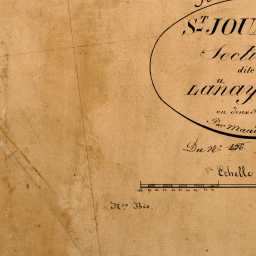 ST JOU
Secti
dite
Lanay
en deux
Par Mau
Du No. 496
Echelle
No. Bis.